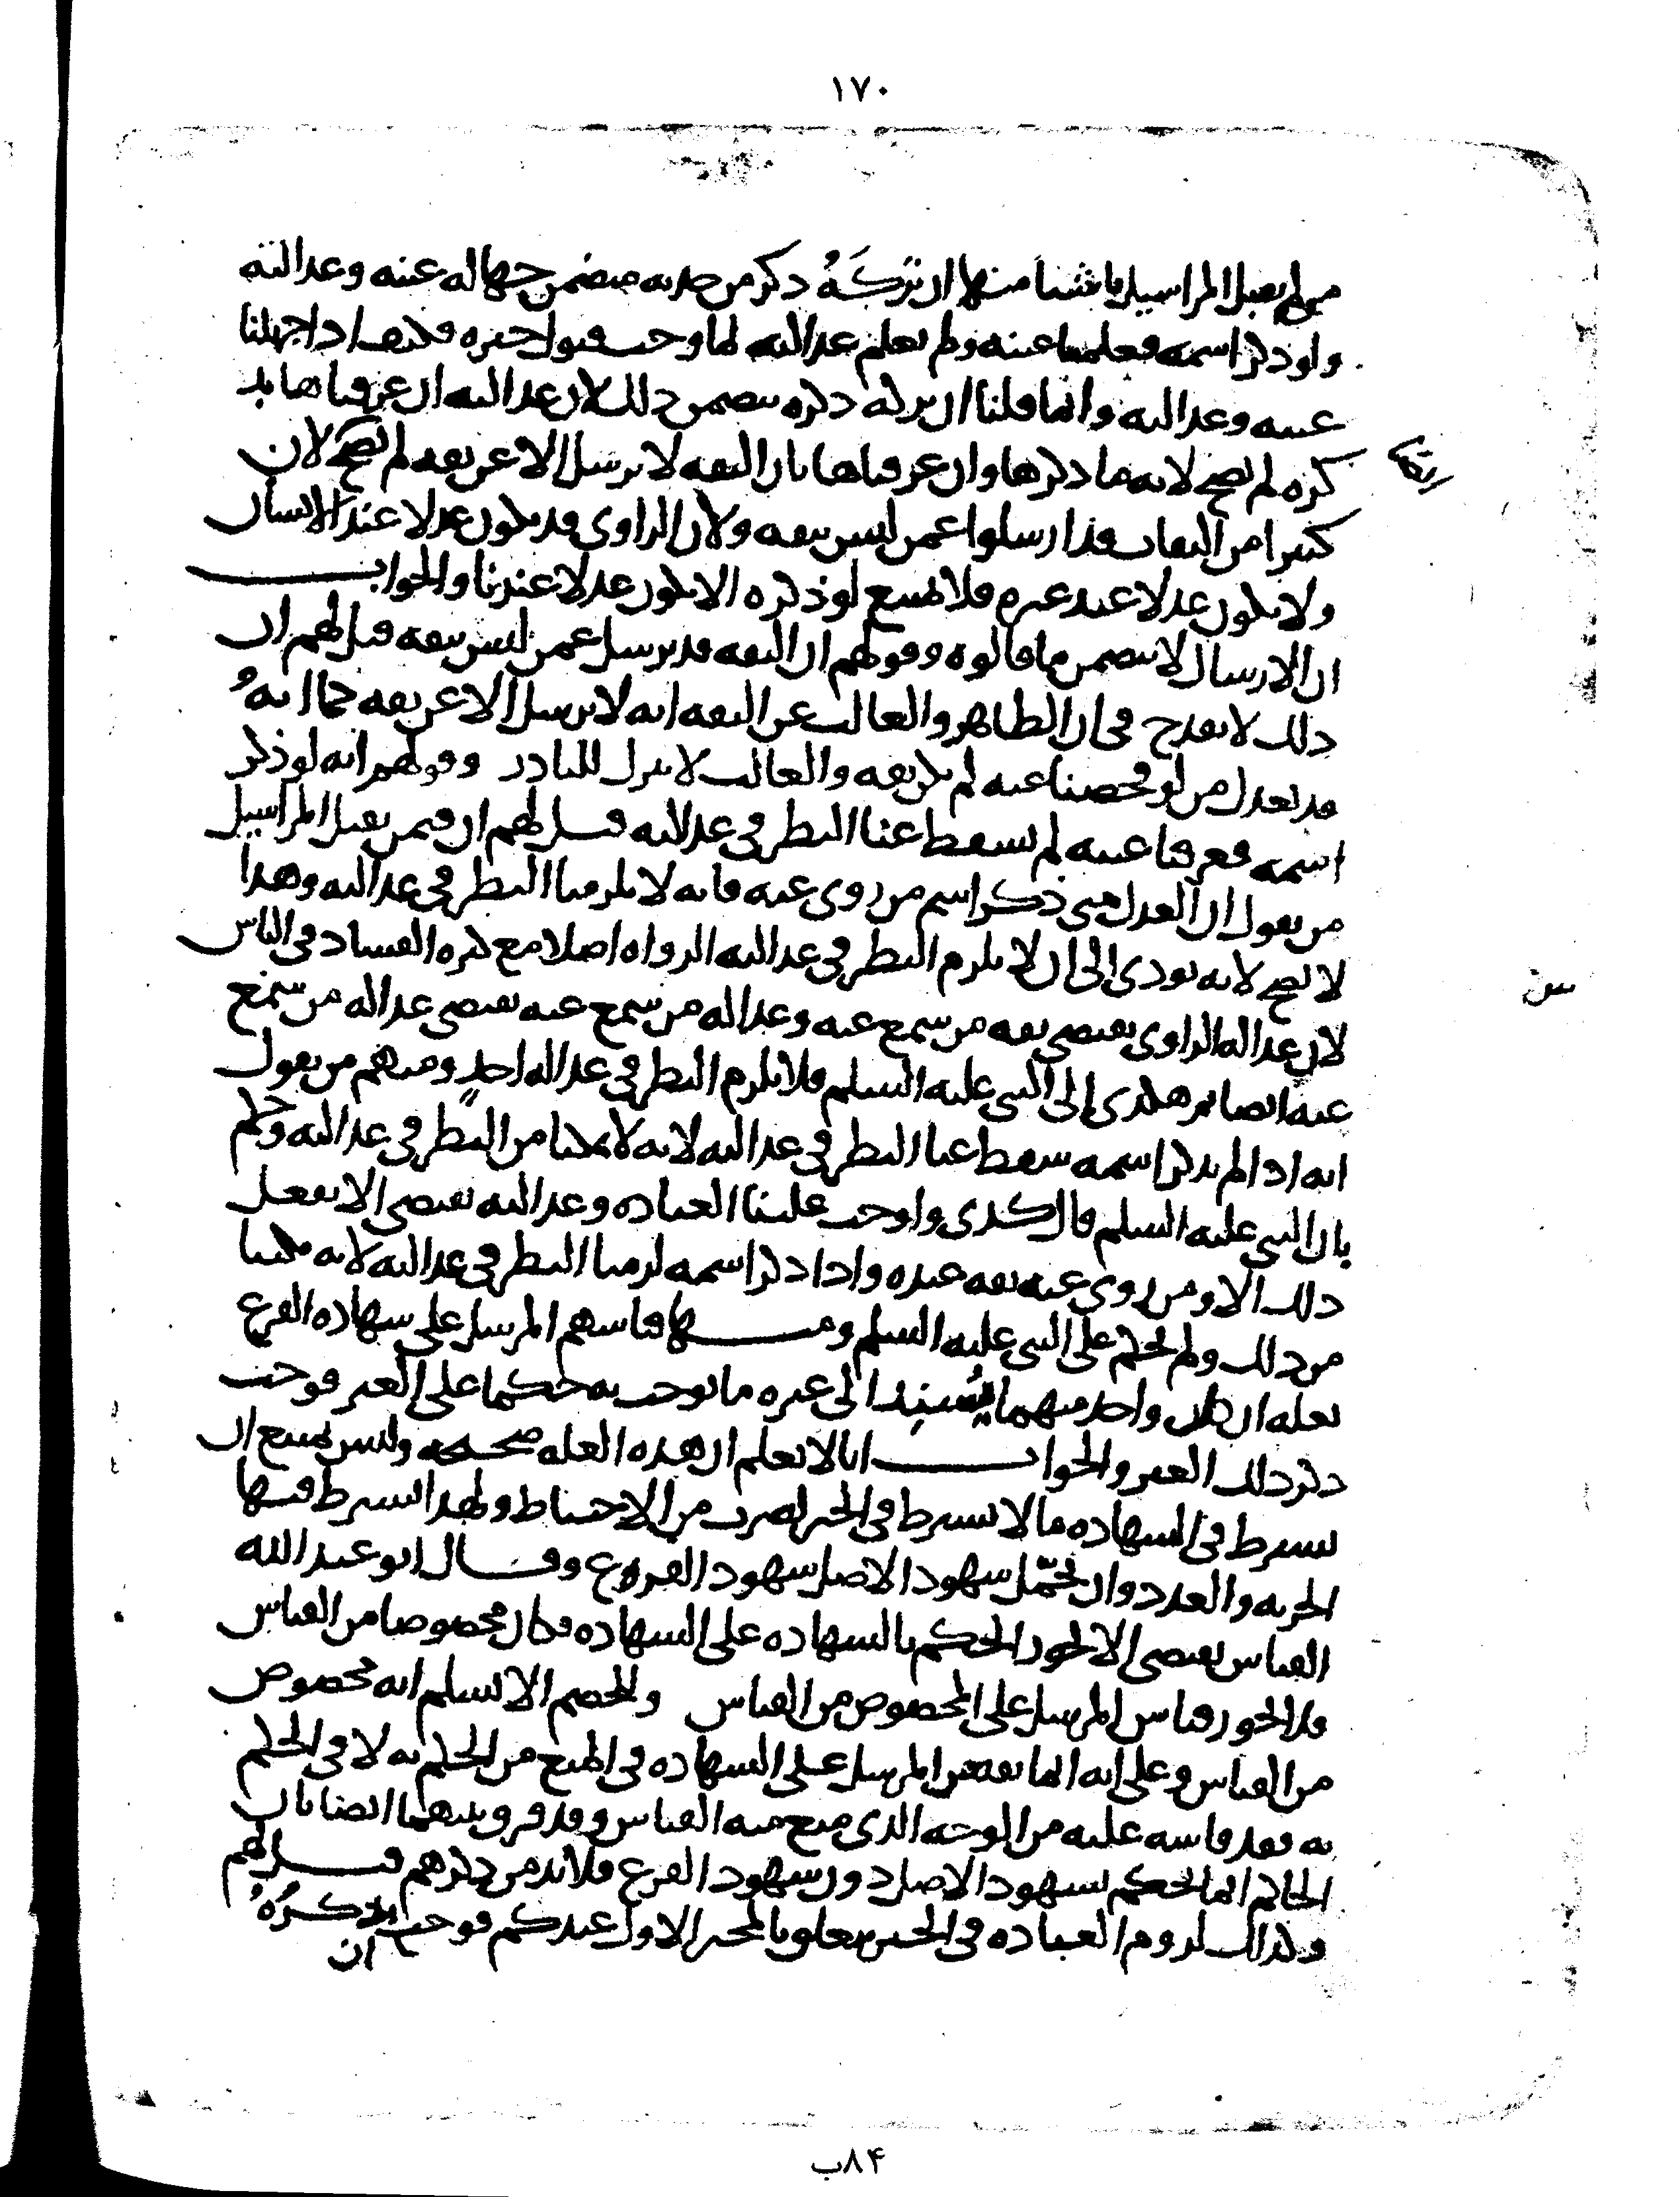 ١٧٠
من لم يقبل المراسيل باشيا منها ان تركه ذكر من حدثه يتضمن جهاله عينه وعدالته
ولو ذكر اسمه فعلمنا عينه ولم نعلم عدالته لما وجب قبول خبره فكيف اذا جهلنا
عينه وعدالته وانما قلنا ان تركه ذكره يتضمن ذلك لان عدالته ان عرفناها بد
كره لم يصح لانه ما ذكرها وان عرفناها بان الثقه لا يرسل الا عن ثقه لم يصح لان
كثيرا من الثقات قد ارسلوا عمن ليس بثقه ولان الراوى قد يكون عدلا عند الانسان
ولا يكون عدلا عند غيره فلا يمتنع لو ذكره الا يكون عدلا عندنا والجواب
ان الارسال لا يتضمن ما قالوه وقولهم ان الثقه قد يرسل عمن ليس بثقه قيل لهم ان
ذلك لا يقدح فى ان الظاهر والغالب عن الثقه انه لا يرسل الا عن ثقه كما انه
قد يعدل من لو فحصنا عنه لم يكن ثقه والغالب لا يترك للنادر وقولهم انه لو ذكر
اسمه فعرفنا عينه لم يسقط عنا النظر فى عدالته قيل لهم ان فيمن يقبل المراسيل
من يقول ان العدل متى ذكر اسم من روى عنه فانه لا يلزمنا النظر فى عدالته وهذا
لا يصح لانه يودى الى ان لا يلزم النظر فى عداله الرواه اصلا مع كثره الفساد فى الناس
لان عداله الراوى يقتضى ثقه من سمع عنه وعداله من سمع عنه يقتضى عداله من سمع
عنه ايضا ثم هكذى الى النبى عليه السلم فلا يلزم النظر فى عداله احد ومنهم من يقول
انه اذا لم يذكر اسمه سقط عنا النظر فى عدالته لانه لا يمكننا من النظر فى عدالته وحكم
بان النبى عليه السلم قال كذى واوجب علينا العباده وعدالته يقتضى الا يفعل
ذلك الا ومن روى عنه ثقه عنده واذا ذكر اسمه لزمنا النظر فى عدالته لانه مكننا
من ذلك ولم يحكم على النبى عليه السلم ومنها قياسهم المرسل على شهاده الفرع
بعله ان كل واحد منهما يسند الى غيره ما يوجب به حكما على الغير فوجب
ذكر ذلك الغير والجواب انا لا نعلم ان هذه العله صحيحه وليس يمتنع ان
يشرط فى الشهاده ما لا يشرط فى الخبر لضرب من الاحتياط ولهذا شرط فيها
الحريه والعدد وان يحمل شهود الاصل شهود الفروع وقال ابو عبد الله
القياس يقتضى الا يجوز الحكم بالشهاده على الشهاده فكان مخصوصا من القياس
فلا يجوز قياس المرسل على المخصوص من القياس وللخصم الا يسلم انه مخصوص
من القياس وعلى انه انما يقيس المرسل على الشهاده فى المنع من الحكم به لا فى الحكم
به فقد قاسه عليه من الوجه الذى منع منه القياس وقد فرق بينهما ايضا بان
الحاكم انما يحكم بشهود الاصل دون شهود الفرع فلا بد من ذكرهم قيل لهم
وكذلك لزوم العباده فى الخبر يتعلق بالمخبر الاول عندكم فوجب ذكره
ان
٨۴ب